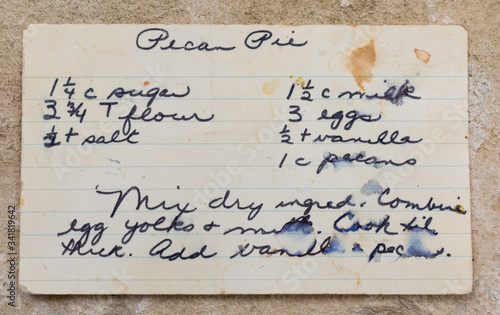 Pecan Pie
1 1/4 c sugar
3 3/4 T flour
1/2 t salt
1 1/2 c milk
3 eggs
1/2 t vanilla
1 c pecans
Mix dry ingred. Combine
egg yolks + milk. Cook til
thick. Add vanilla + pecans.
Adobe Stock | #341819642